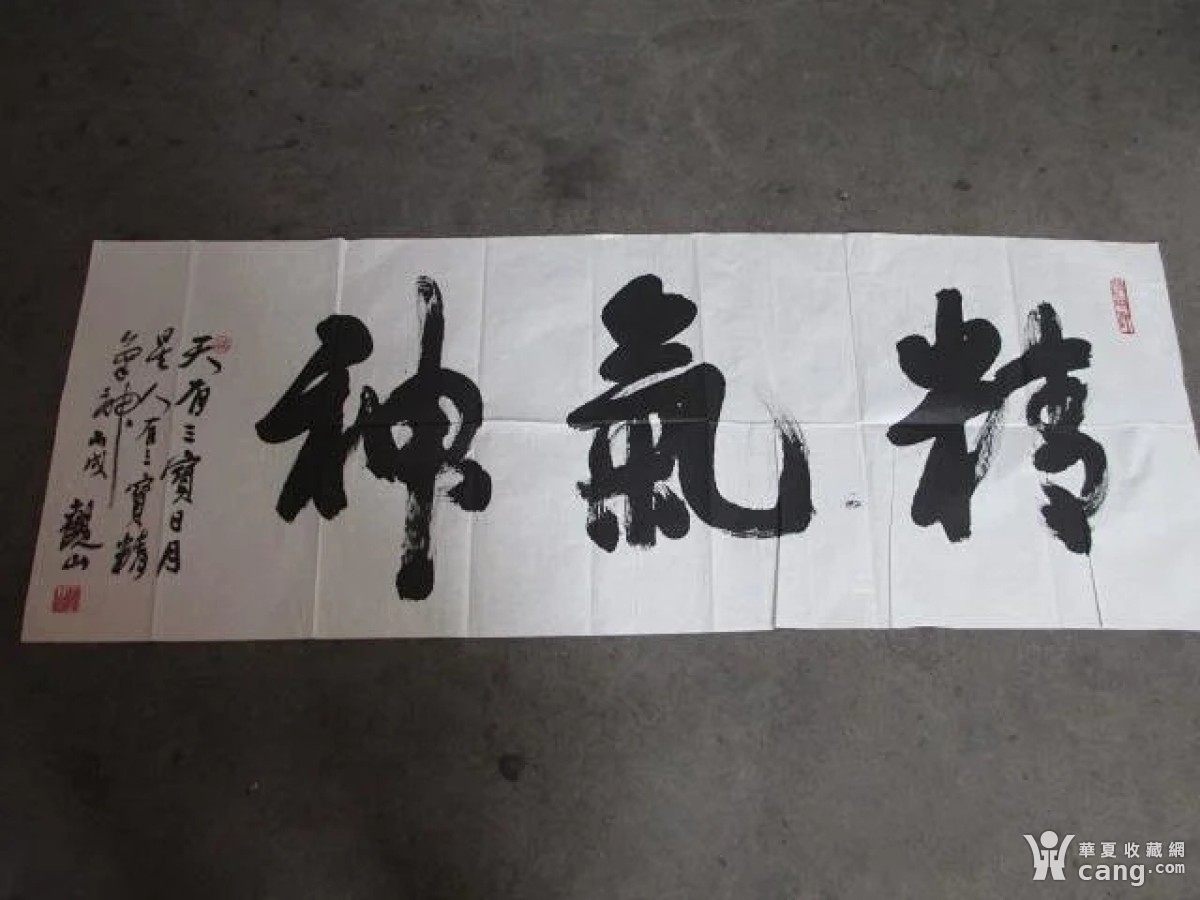 精氣神
天有三寳日月
星人有三寳精
氣神丙戌
山
華夏收藏網
cang.com